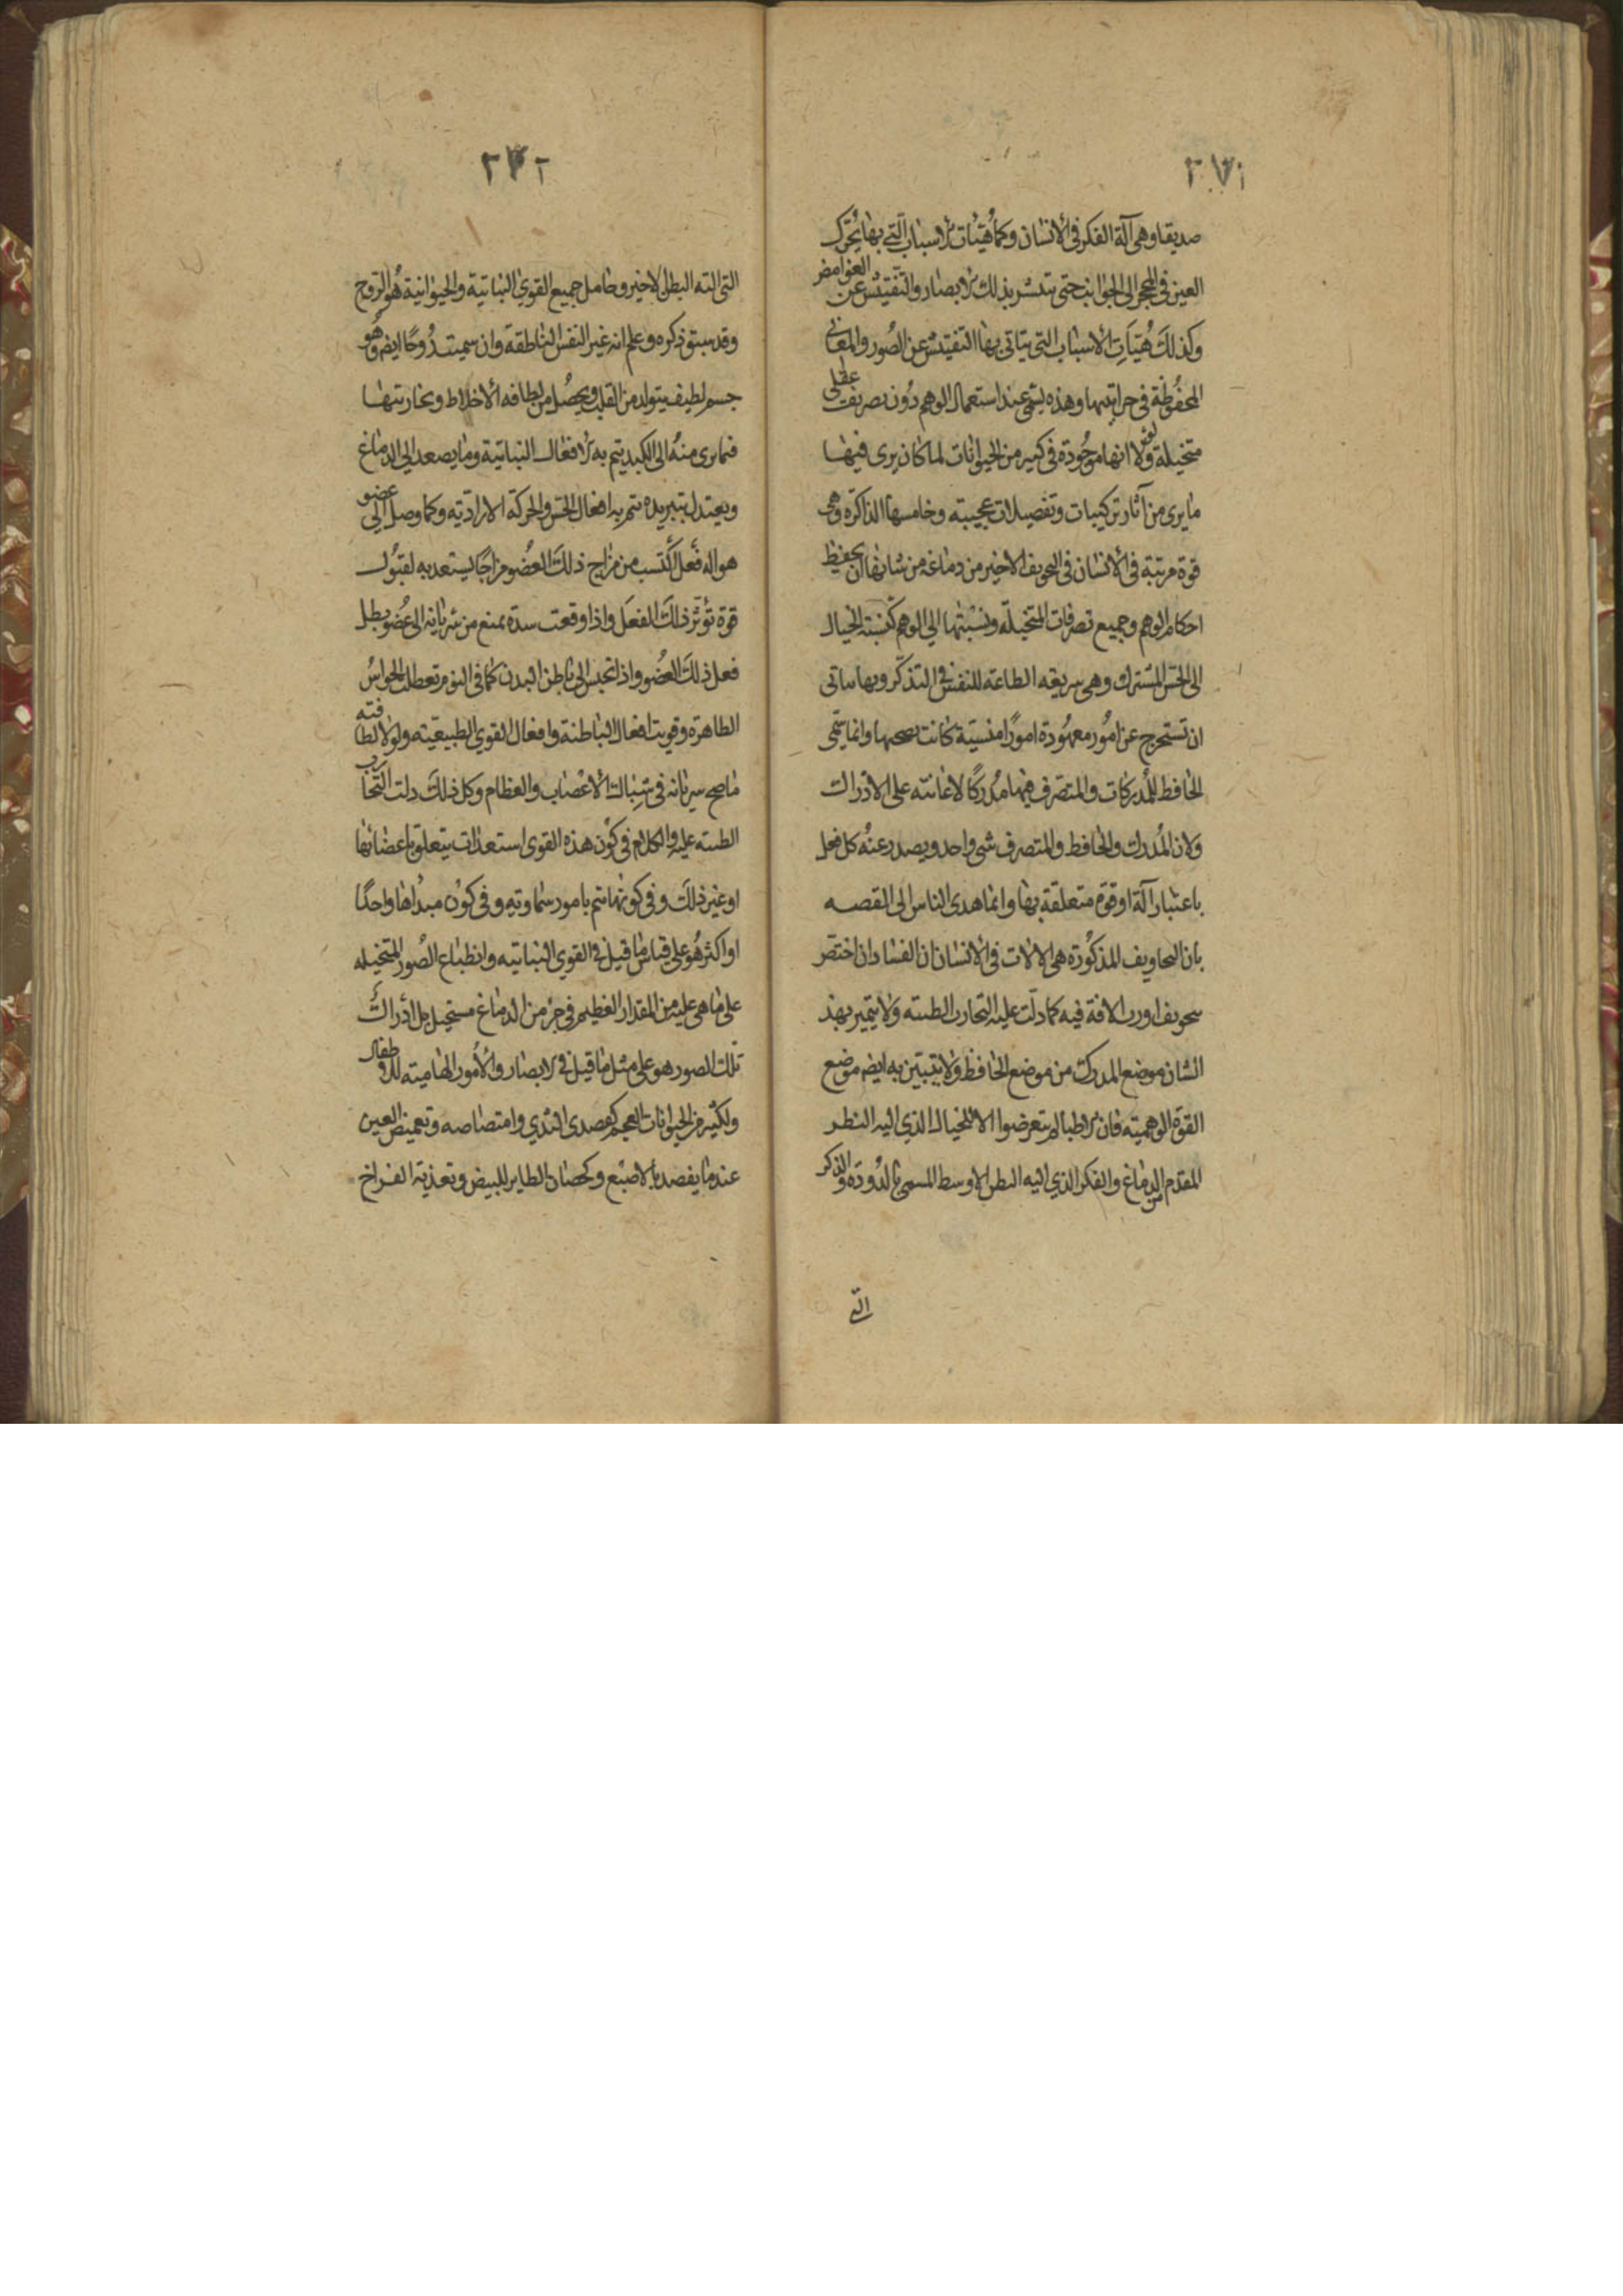 ٢٧١
صديقا وهى آلة الفكر فى الأنسان وكما هُيّئات الاسباب الّتى بها يُحّرك
العين فى المحجر الى الجوانب حتى تنتشر بذلك الابصار والتفتيش عن الغوامض
وكذلك هُيّاَت الأسباب التى يتاتى بها التفتيش عن الصُور والمعانى
المحفُوظة فى خزانتيهما وهذه يسمّى عند استعمال الوهم دُون تصريف عقلى
متخيلة ولولا انها موجُودة فى كثير من الحيوانات لما كان يرى فيها
ما يرى من آثار تركيبات وتفصيلات عجيبة وخامسها الذاكرة وهى
قوة مرتبة فى الأنسان فى التجويف الاخير من دماغه من شانها ان يحفظ
احكام الوهم وجميع تصرفات المتخيلّه ونسبتها الى الوهم كنسبته الخيال
الى الحّس المشترك وهى سريعه الطاعة للنفس فى التذكّر وبها يتاتى
ان تستخرج عن اُمُور معهُودة امورًا منسيّة كانت وانما يسمّى
الحافظ للمُدركات والمتصّرف فيها مُدركًا لاعانته على الادراك
ولان المُدرك والحافظ والمتصرف شى واحد ويصدر عنهُ كل فعل
باعتبار آلة او قوّة متعلقة بها وانما هدى الناس الى القصه
بان التجاويف المذكُورة هى الالات فى الانسان ان الفساد ان اختصّر
بتجويف اورث الافة فيه كما دلّت عليه التجارب الطبيه ولا يتميز بهذ
الشان موضع المدرك من موضع الحافظ ولا يتبيّن به ايضم موضع
القوّة الوهميّة فان الاطبا لم يتعرضوا الا للخيال الذى اليه النظر
المقدّم من الدماغ والفكر الذى اليه البطن الاوسط المسمى بالدُودة والذكر
التى
٢٧٢
التى الته البطن الاخير وحامل جميع القوى النباتية والحيوانية هُو الرّوح
وقد سبق ذكره وعلم انه غير النفس الناطقة وان سميت رُوحًا ايضم وهُو
جسم لطيف يتولد من القلب ويحصُل من لطافه الأخلاط وبخاريتها
فما يرى منهُ الى الكبد يتم به الافعال النباتية وما يصعد الى الدماغ
ويعتدل بتبريده يتم به افعال الحّس والحركة الاراديّه وكما وصل الى عضو
هو اله فعل اكتسب من مزاج ذلك العُضو مزاجًا يستعد به لقبُول
قوة تُؤثر ذلك الفعل واذا وقعت سدة يمنع من سريانه الى عُضو بطل
فعل ذلك العُضو واذا انحبس الى باطن البدن كما فى النوم تعطلت الحواسُ
الظاهرة وقويت افعال الباطنة وافعال القوى الطبيعيّه ولولا لطافته
ما صح سريانه فى شباك الأعصاب والعظام وكل ذلك دلت التجارب
الطبيه عليه والكلام فى كَون هذه القوى استعدادات يتعلق باعضائها
او غير ذلك وفى كونها تتم بامور سماويّه وفى كون مبدُاها واحدًا
او اكثر هُو على قياس ما قيل فى القوى النباتيه وانطباع الصُور المتخيله
على ما هى عليه من المقدار العظيم فى جزء من الدماغ مستحيل بل ادراك
تلك الصور هو على مثل ما قيل فى الابصار والأُمور الهاميته للاطفال
ولكثير من الحيوانات العجم كقصدى الثدي وامتصاصه وتغميض العين
عند ما يقصد بالاصبع وكحضان الطاير للبيض وتغذية الفراخ